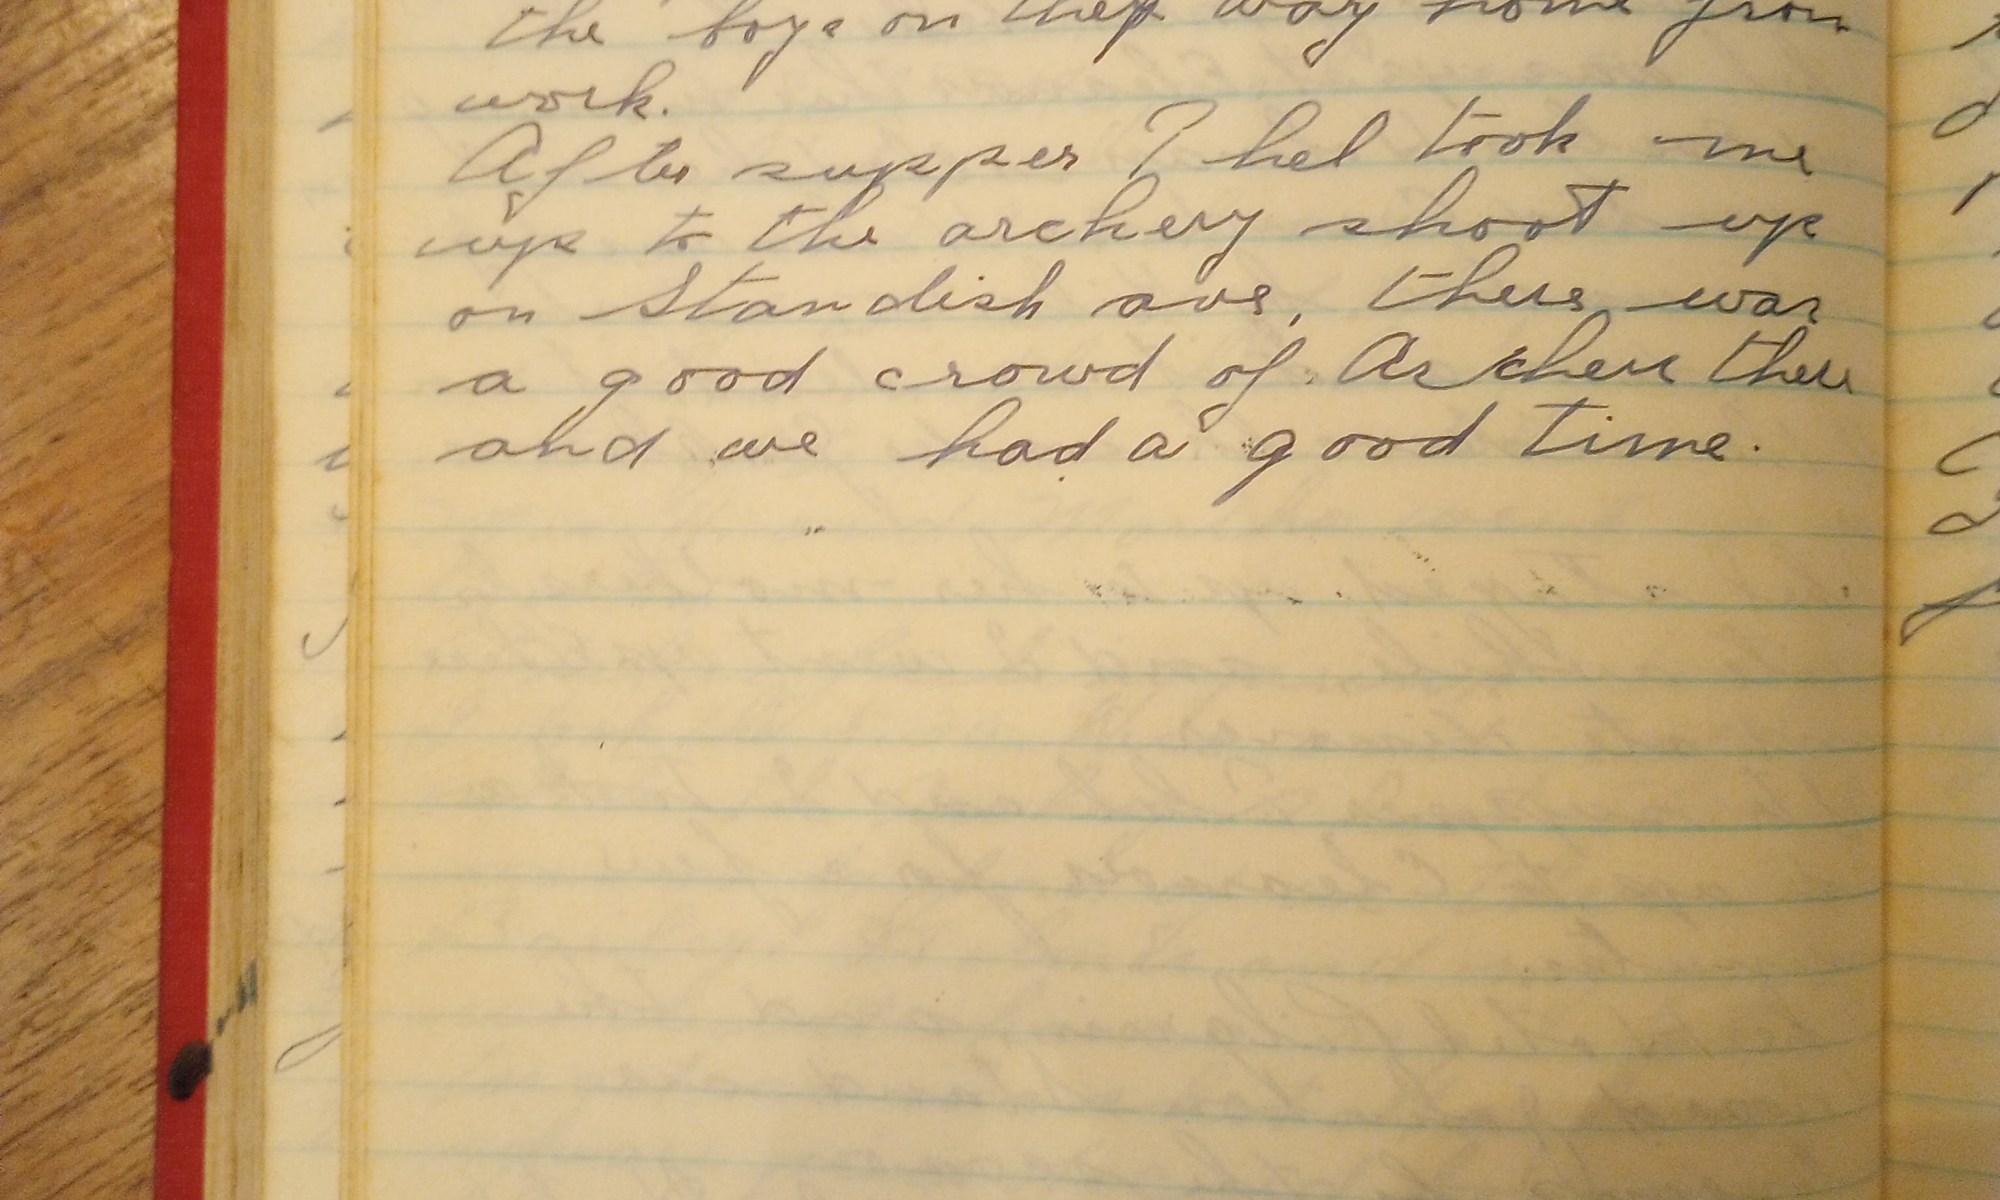 the boys on their way home from
work.
After supper Phel took me
up to the archery shoot up
on Standish ave, there was
a good crowd of Archers there
and we had a good time.